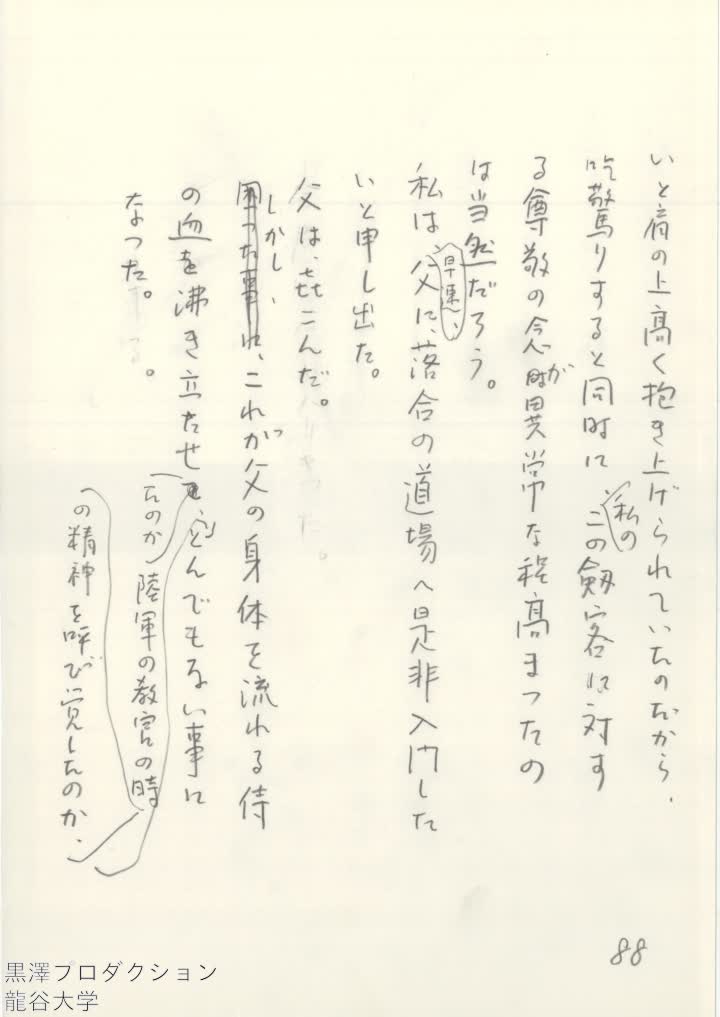 いと肩の上高く抱き上げられていたのだから、
吃驚りすると同時に私のこの剱客に対す
る尊敬の念が異常な程高まつたの
は当然だろう。
私は父に、早速、落合の道場へ是非入門した
いと申し出た。
父は、㐂こんだ。
しかし、
困った事に、これが父の身体を流れる侍
の血を沸き立たせ
たのか
陸軍の教官の時
の精神を呼び覚したのか、
とんでもない事に
なつた。
88
黒澤プロダクション
龍谷大学